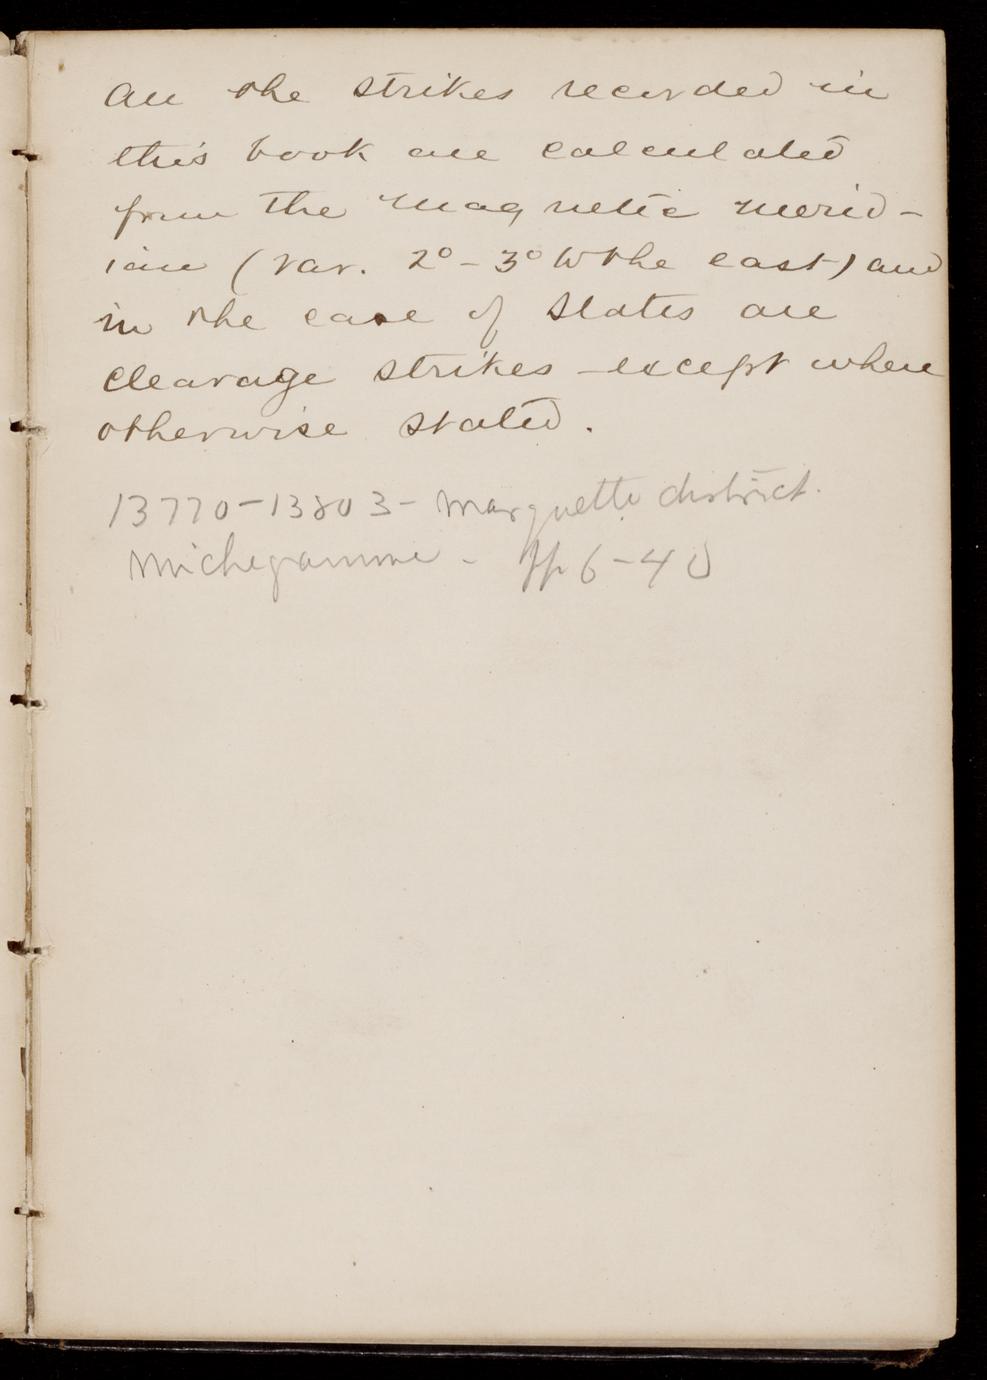 All the strikes recorded in
this book are calculated
from the magnetic merid-
ian (var. 2° - 3° to the east) and
in the case of slates are
cleavage strikes - except where
otherwise stated.
13770-13803- Marquette district.
Michigamme - pp 6-40